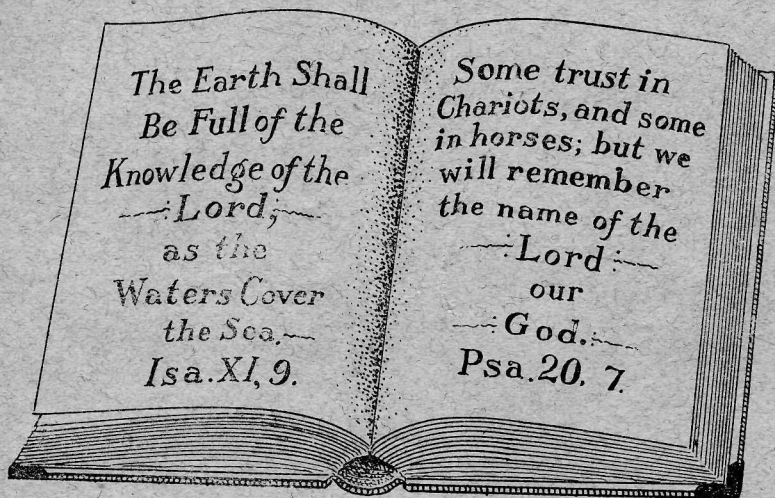 The Earth Shall
Be Full of the
Knowledge of the
Lord,
as the
Waters Cover
the Sea.
Isa. XI, 9.
Some trust in
Chariots, and some
in horses; but we
will remember
the name of the
Lord
our
God.
Psa. 20, 7.